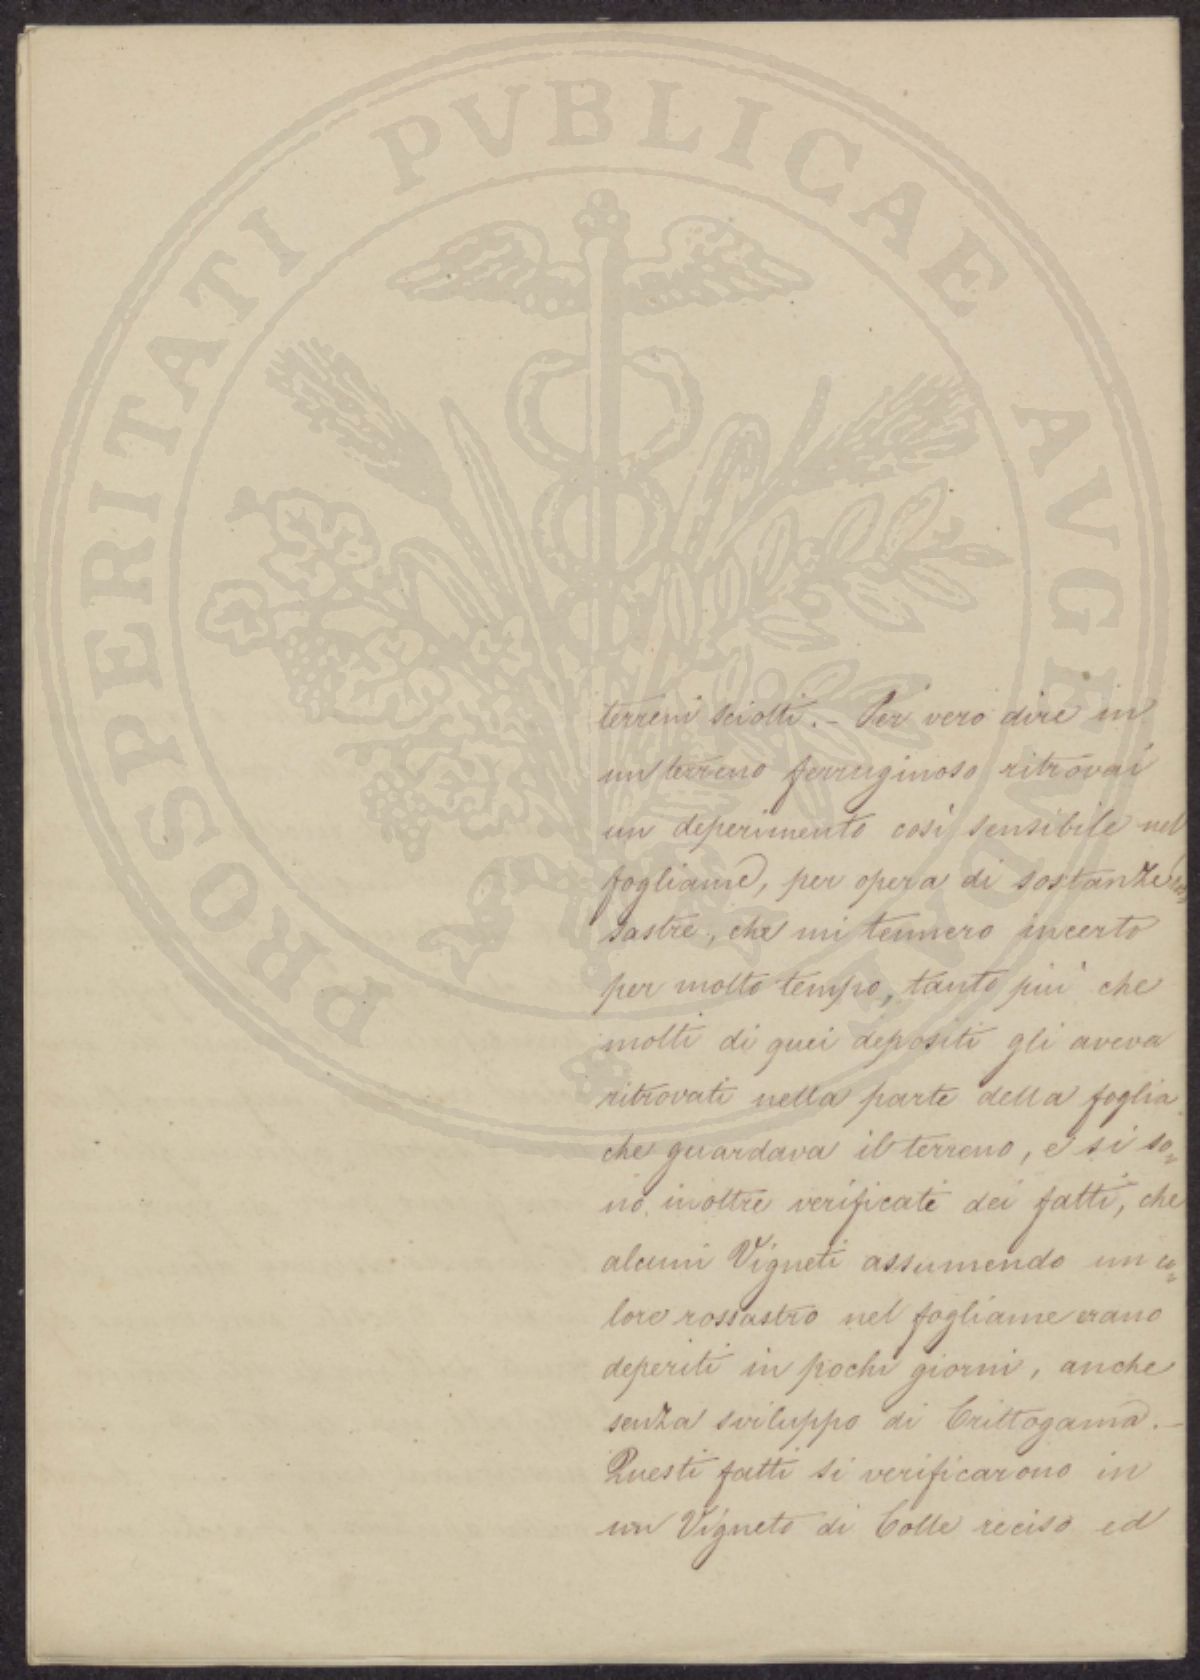 PROSPERITATI PVBLICAE AVGENDAE
terreni sciolti. – Per vero dire in
un terreno ferruginoso ritrovai
un deperimento così sensibile nel
fogliame, per opera di sostanze ros=
sastre, che mi tennero incerto
per molto tempo, tanto più che
molti di quei depositi gli aveva
ritrovati nella parte della foglia
che guardava il terreno, e si so=
no inoltre verificati dei fatti, che
alcuni Vigneti assumendo un co=
lore rossastro nel fogliame erano
deperiti in pochi giorni, anche
senza sviluppo di Crittogama. –
Questi fatti si verificarono in
un Vigneto di Colle reciso ed